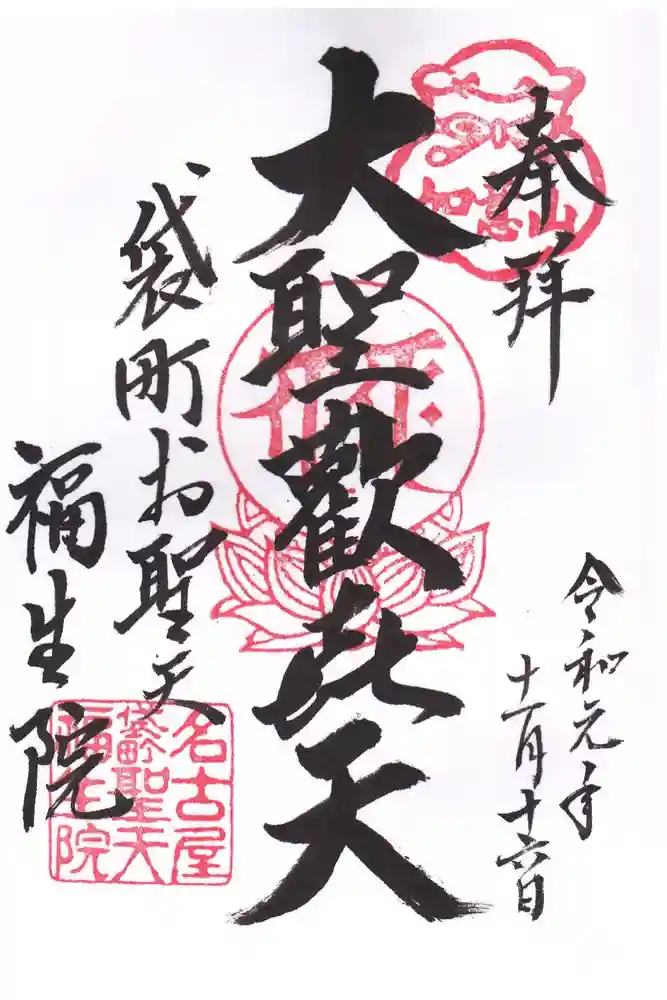 奉拝
如意山
令和元年
十一月十六日
大聖歡喜天
袋町お聖天
福生院
名古屋
袋町聖天
福生院